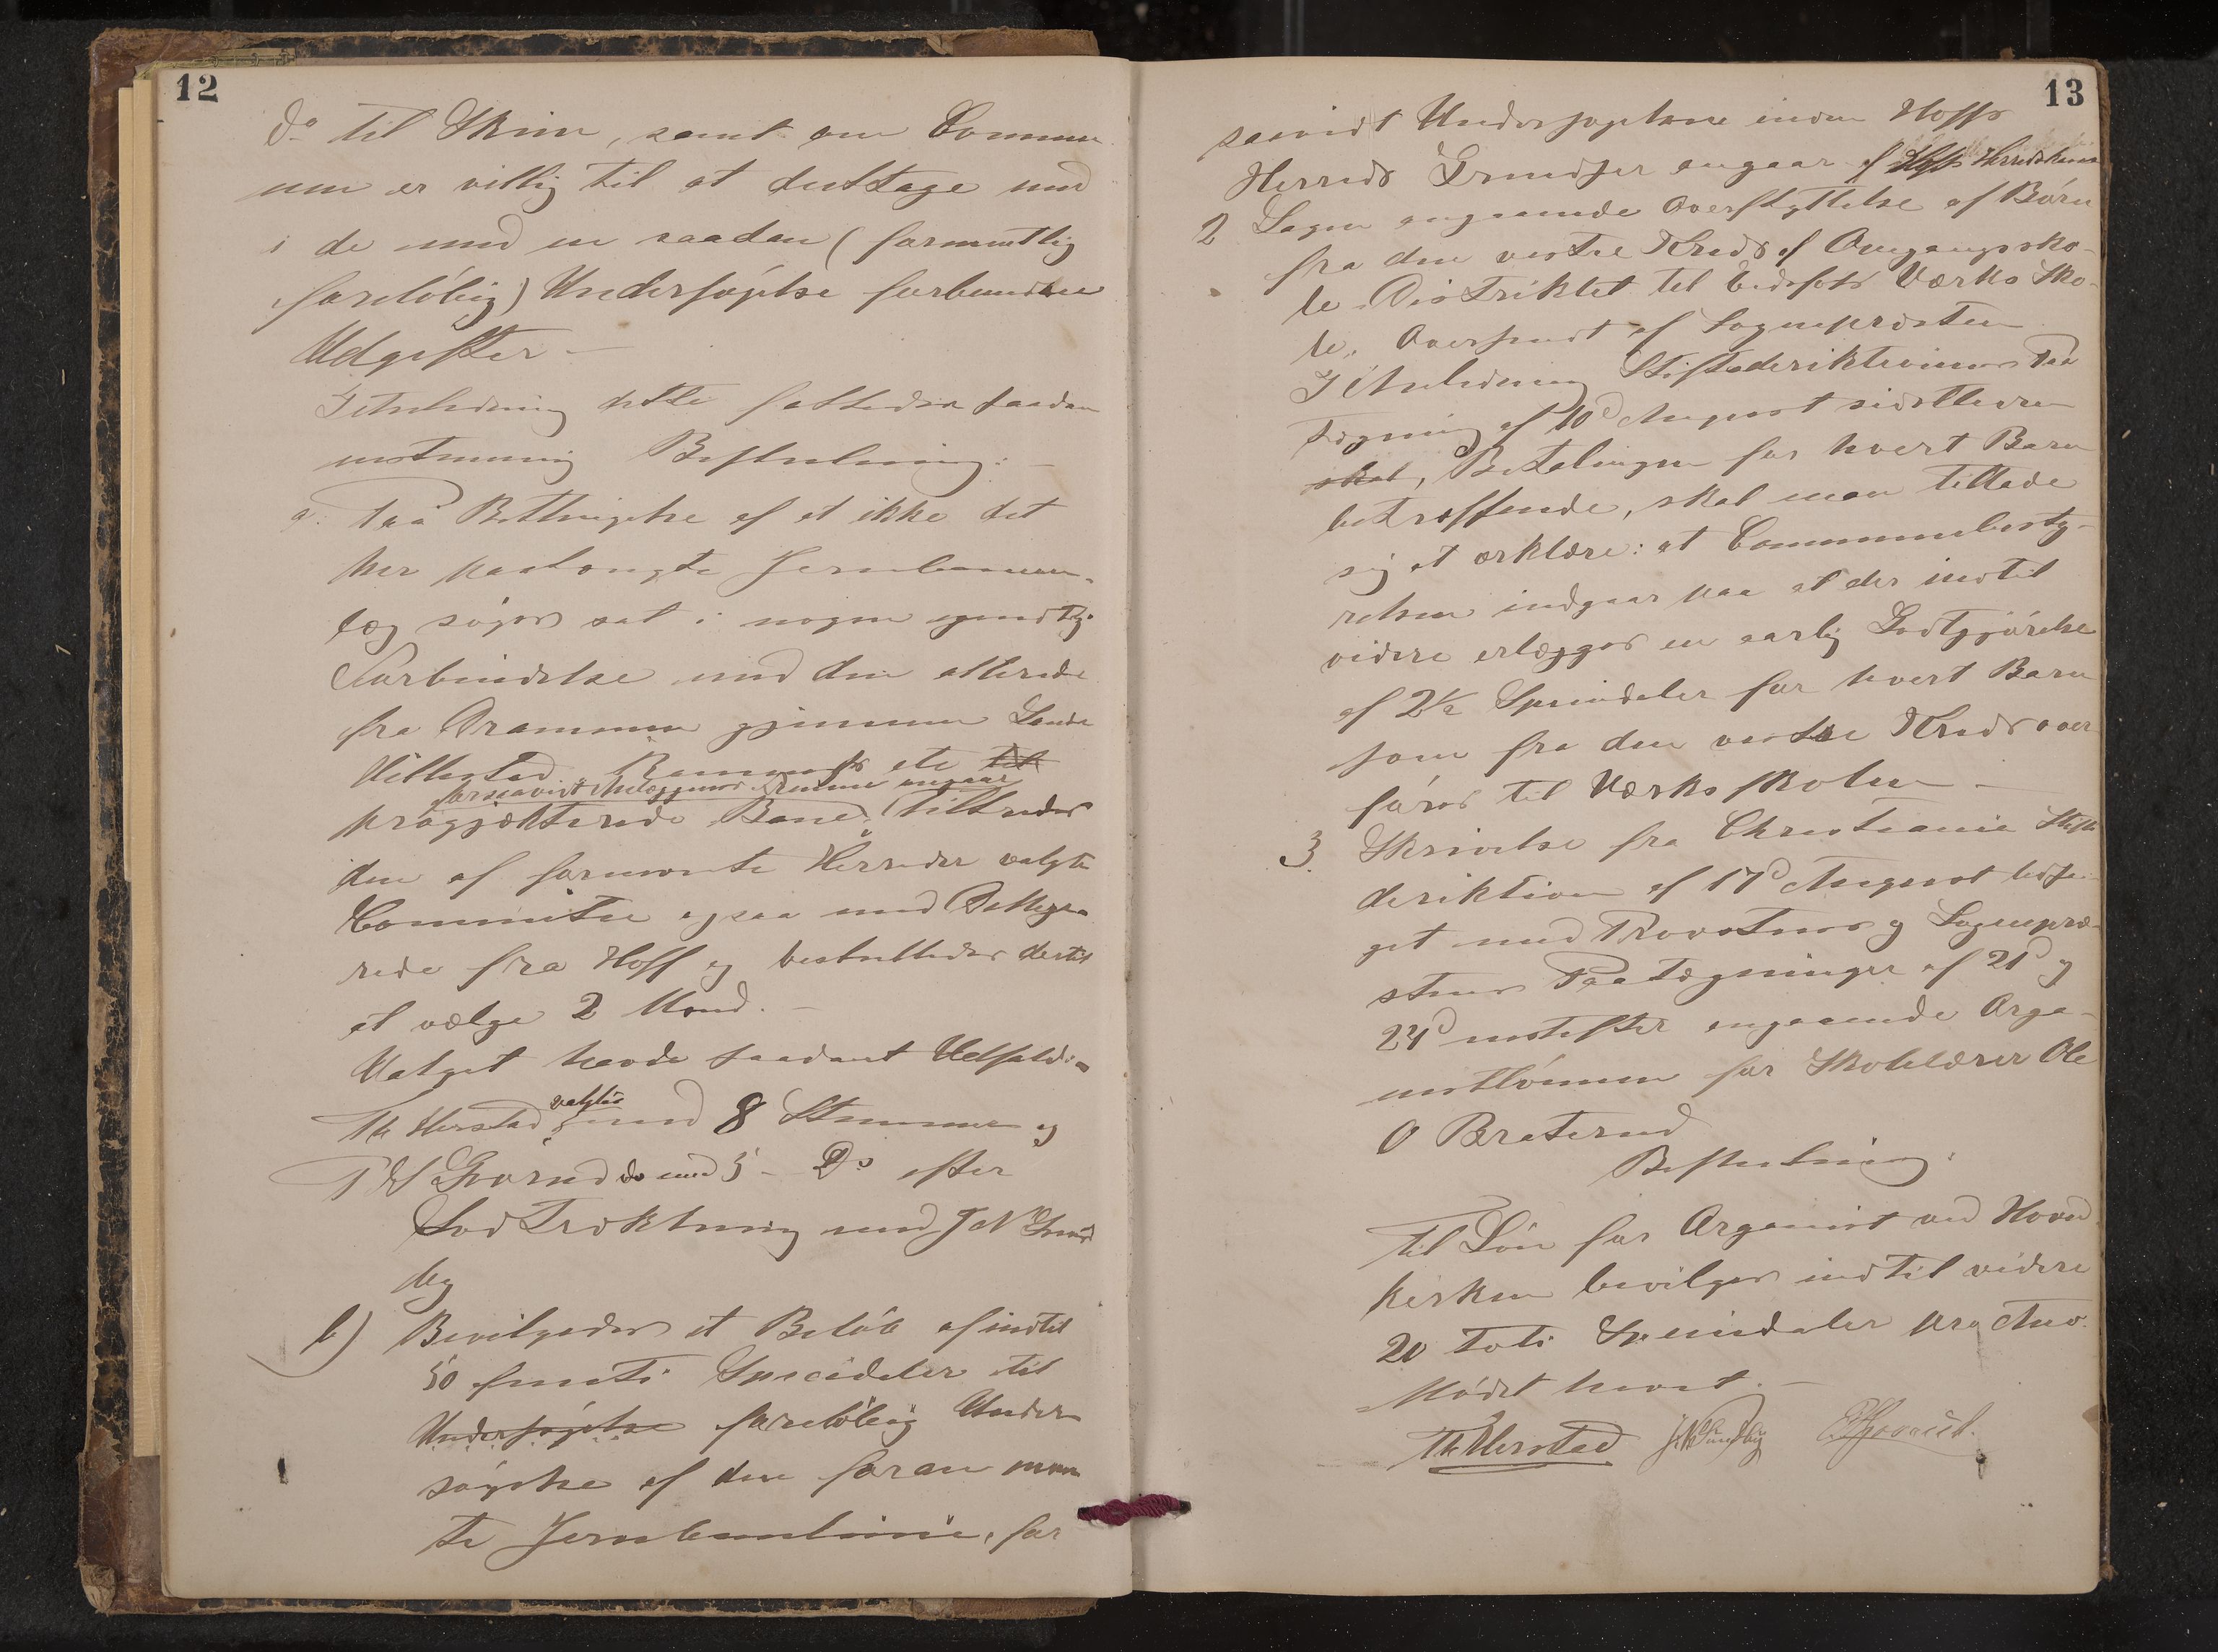 12
do til Skien, samt om Commu
nen er villig til at deeltage med
i de med en saadan (formentlig
foreløbig) Undersøgelse forbundne
Udgifter –
I Anledning dette fattedes saadan
enstemmig Beslutning: –
a. Paa Betingelse af at ikke det
her paatængte Jernbanean-
læg søges sat i nogen ugunstig
Forbindelse med den allerede
fra Drammen gjennem Sande
Hillestad, Ramnes etc til
forsaavidt Anlægget af denne angaar
projækterede Bane, tiltrædes
den af formente Herreder valgte
Committee ogsaa med Delege-
rede fra Hoff og besluttedes dertil
at vælge 2 Mænd. –
Valget havde saadant Udfald:
Th Herstad valgtes med 8 Stemmer og
P E Grorud do med 5 – Do efter
Lodtrækning med J N Sund
bg
b) Bevilgedes et Beløb af indtil
50 femti Speciedaler til
Undersøgelse foreløbig Under
søgelse af den foran mæn
te Jernbanelinie, for
13
saavidt Undersøgelsene inden Hoffs
Herreds Grændser angaar af Hofs Herredskasse
2 Sagen angaaende Overflyttelse af Børn
fra den vestre Kreds af Omgangssko-
le-Distriktet til Eidsfos Værks Sko-
le. Oversendt af Sognepræsten
I Anledning Stiftsdirektionens Paa
tegning af 10d August sidstleden
skal, Betalingen for hvert Barn
betræffende, skal man tillade
sig at erklære: at Communebesty-
relsen indgaar paa at der indtil
videre erlægges en aarlig Godtgjørelse
af 2½ Speciedaler for hvert Barn
som fra den vestre Kreds over
føres til Værksskolen –
3. Skrivelse fra Christiania Stifts
direktion af 17d August ledsa-
get med Provstens og Sognepræ-
stens Paategninger af 21d og
24d næstefter angaaende Orga-
nistlønnen for Skolelærer Ole
O Braterud
Beslutning:
Til Løn for Organist ved Hoved
kirken bevilges indtil videre
20 tyve Speciedaler pro Anno.
Mødet hævet. –
Th Herstad J N Sundbyg P E Grorud.